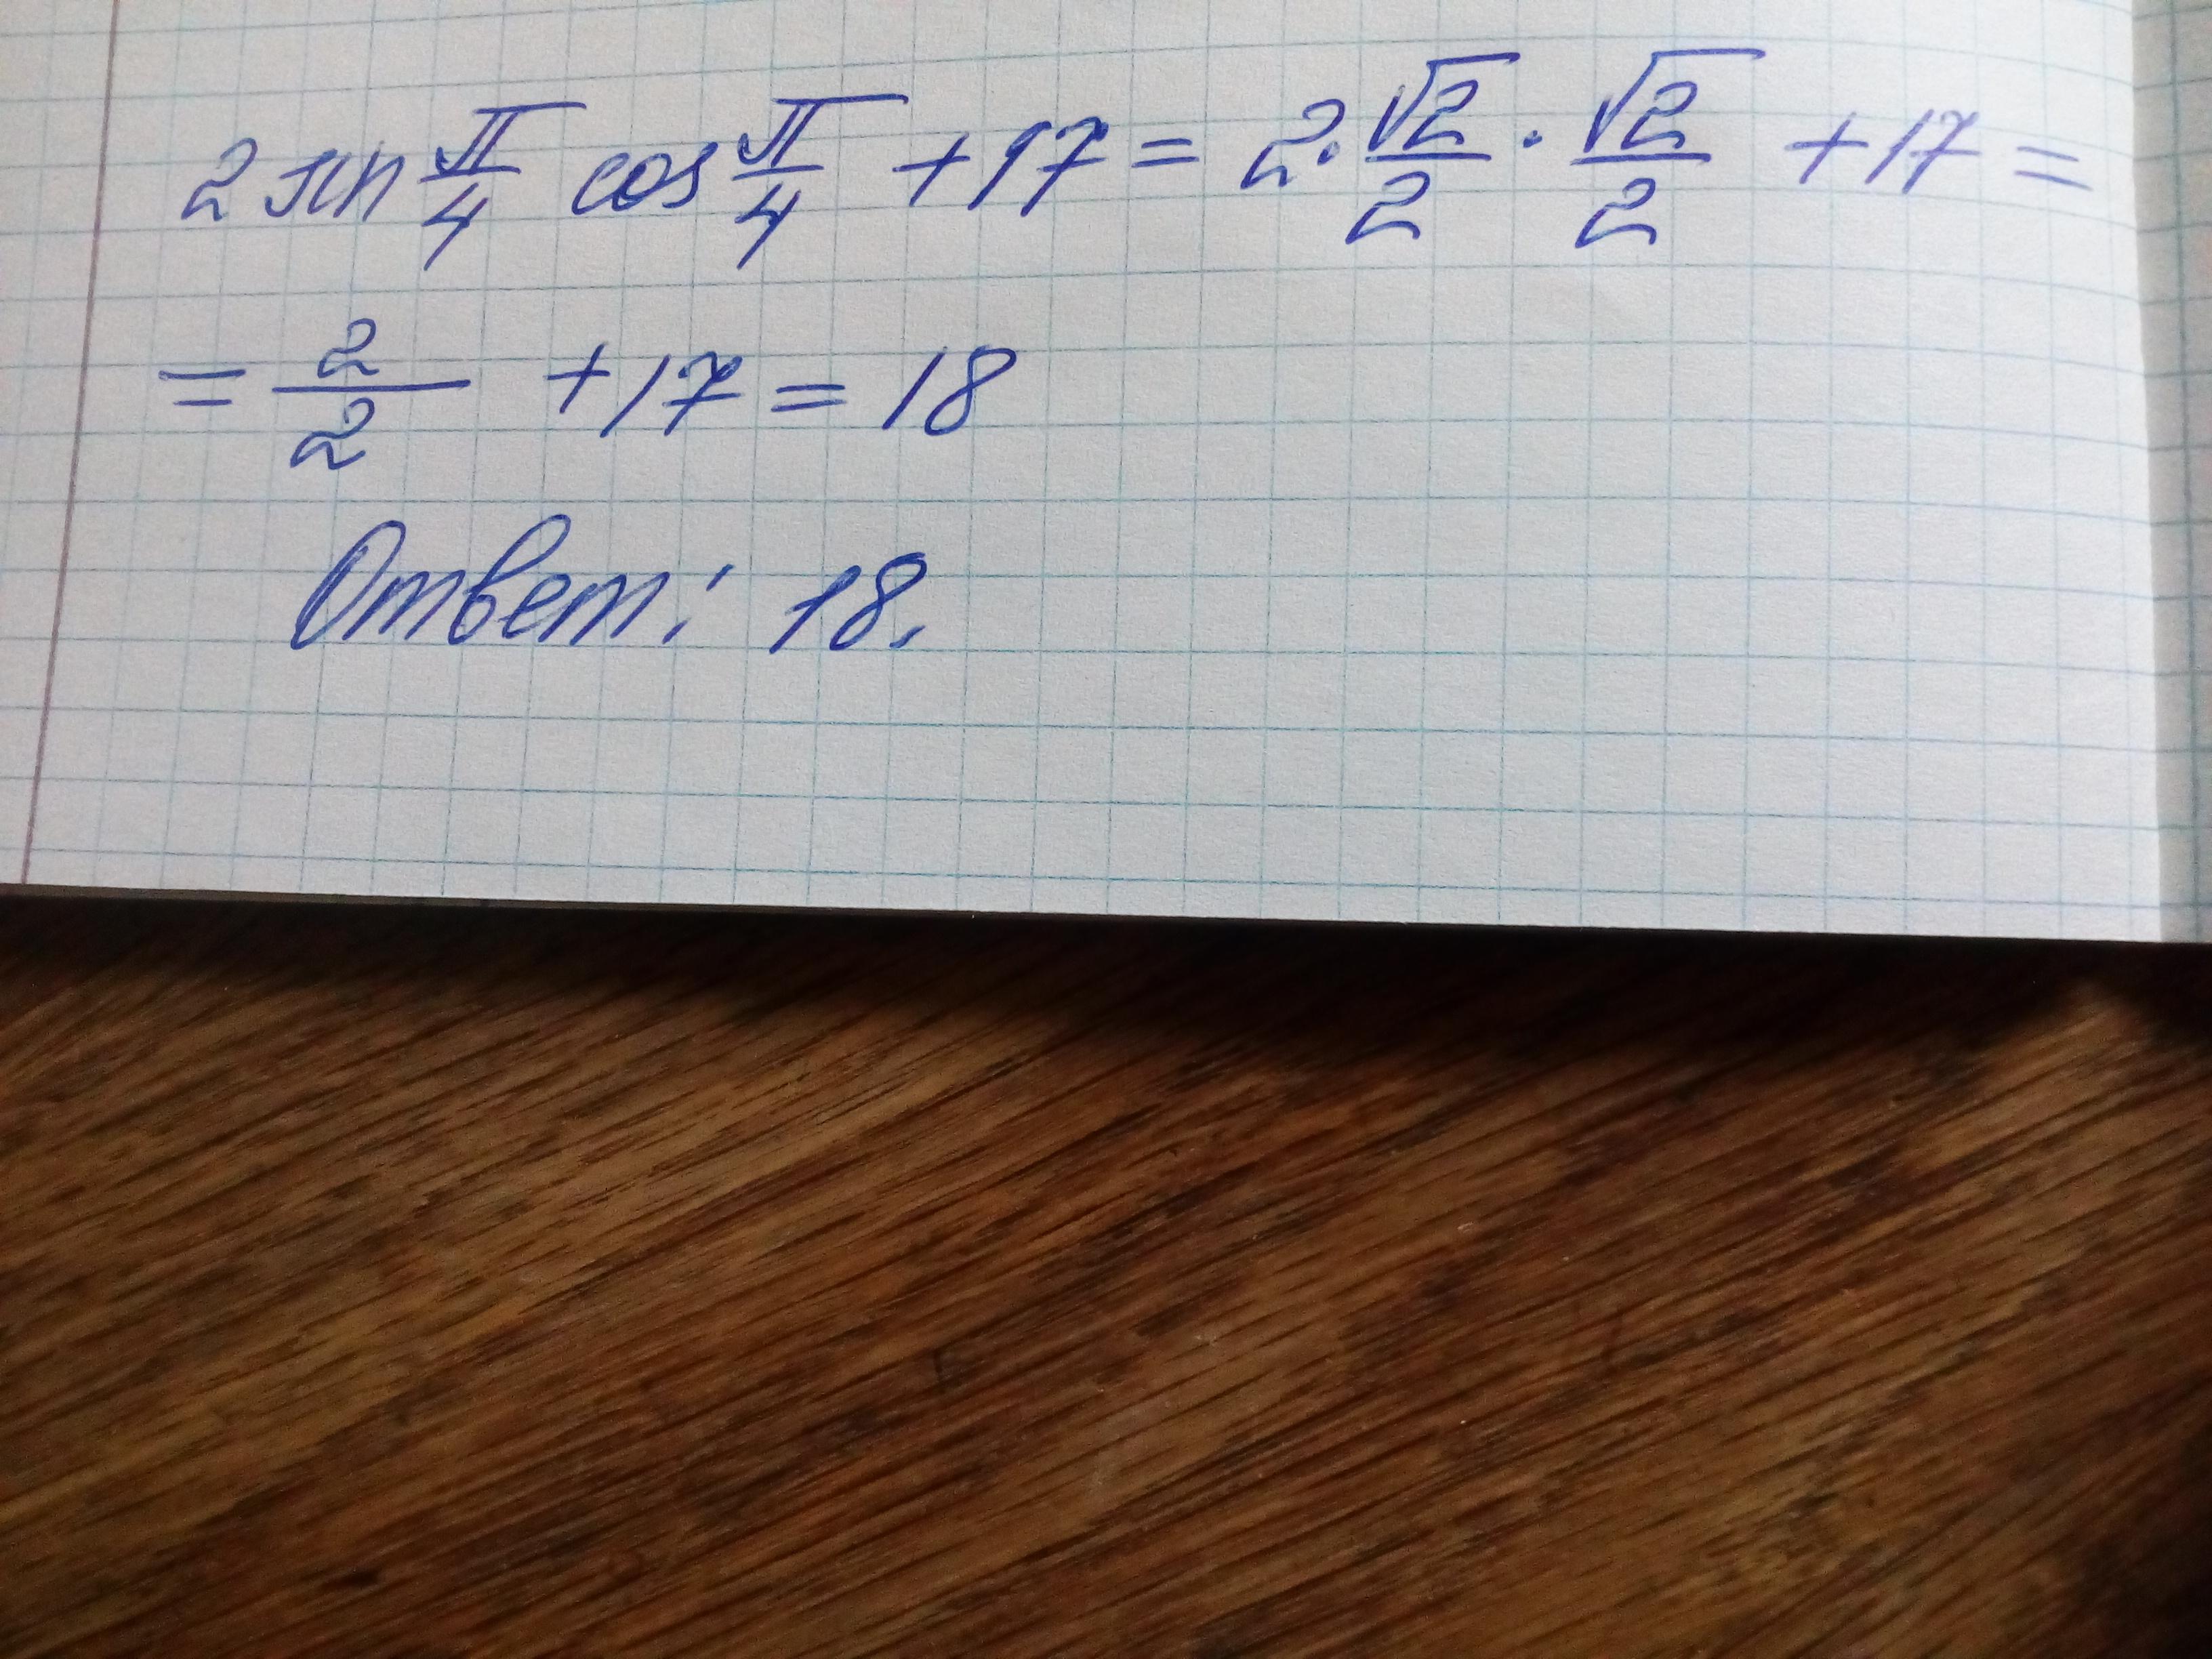 2 sin π/4 cos π/4 + 17 = 2 · √2/2 · √2/2 + 17 =
= 2/2 + 17 = 18
Ответ: 18.